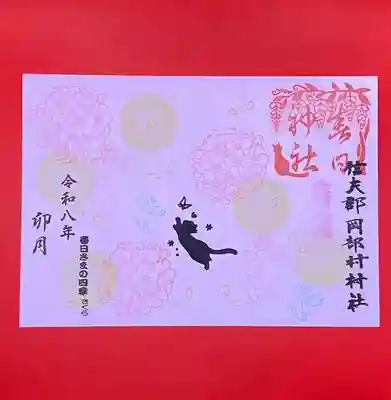 春日
神社
信夫郡岡部村村社
令和八年
卯月
春日さまの四季 さくら